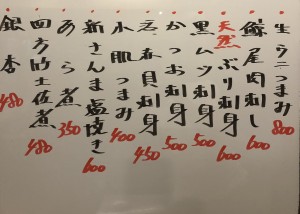 生うに 800
鯨尾肉刺し 800
天然ぶり刺身 600
黒ムツ刺身 500
かつお刺身 500
石垣貝刺身 450
小肌つまみ 400
新さんま塩焼き 600
あら煮 350
四方竹土佐煮 480
銀杏 480